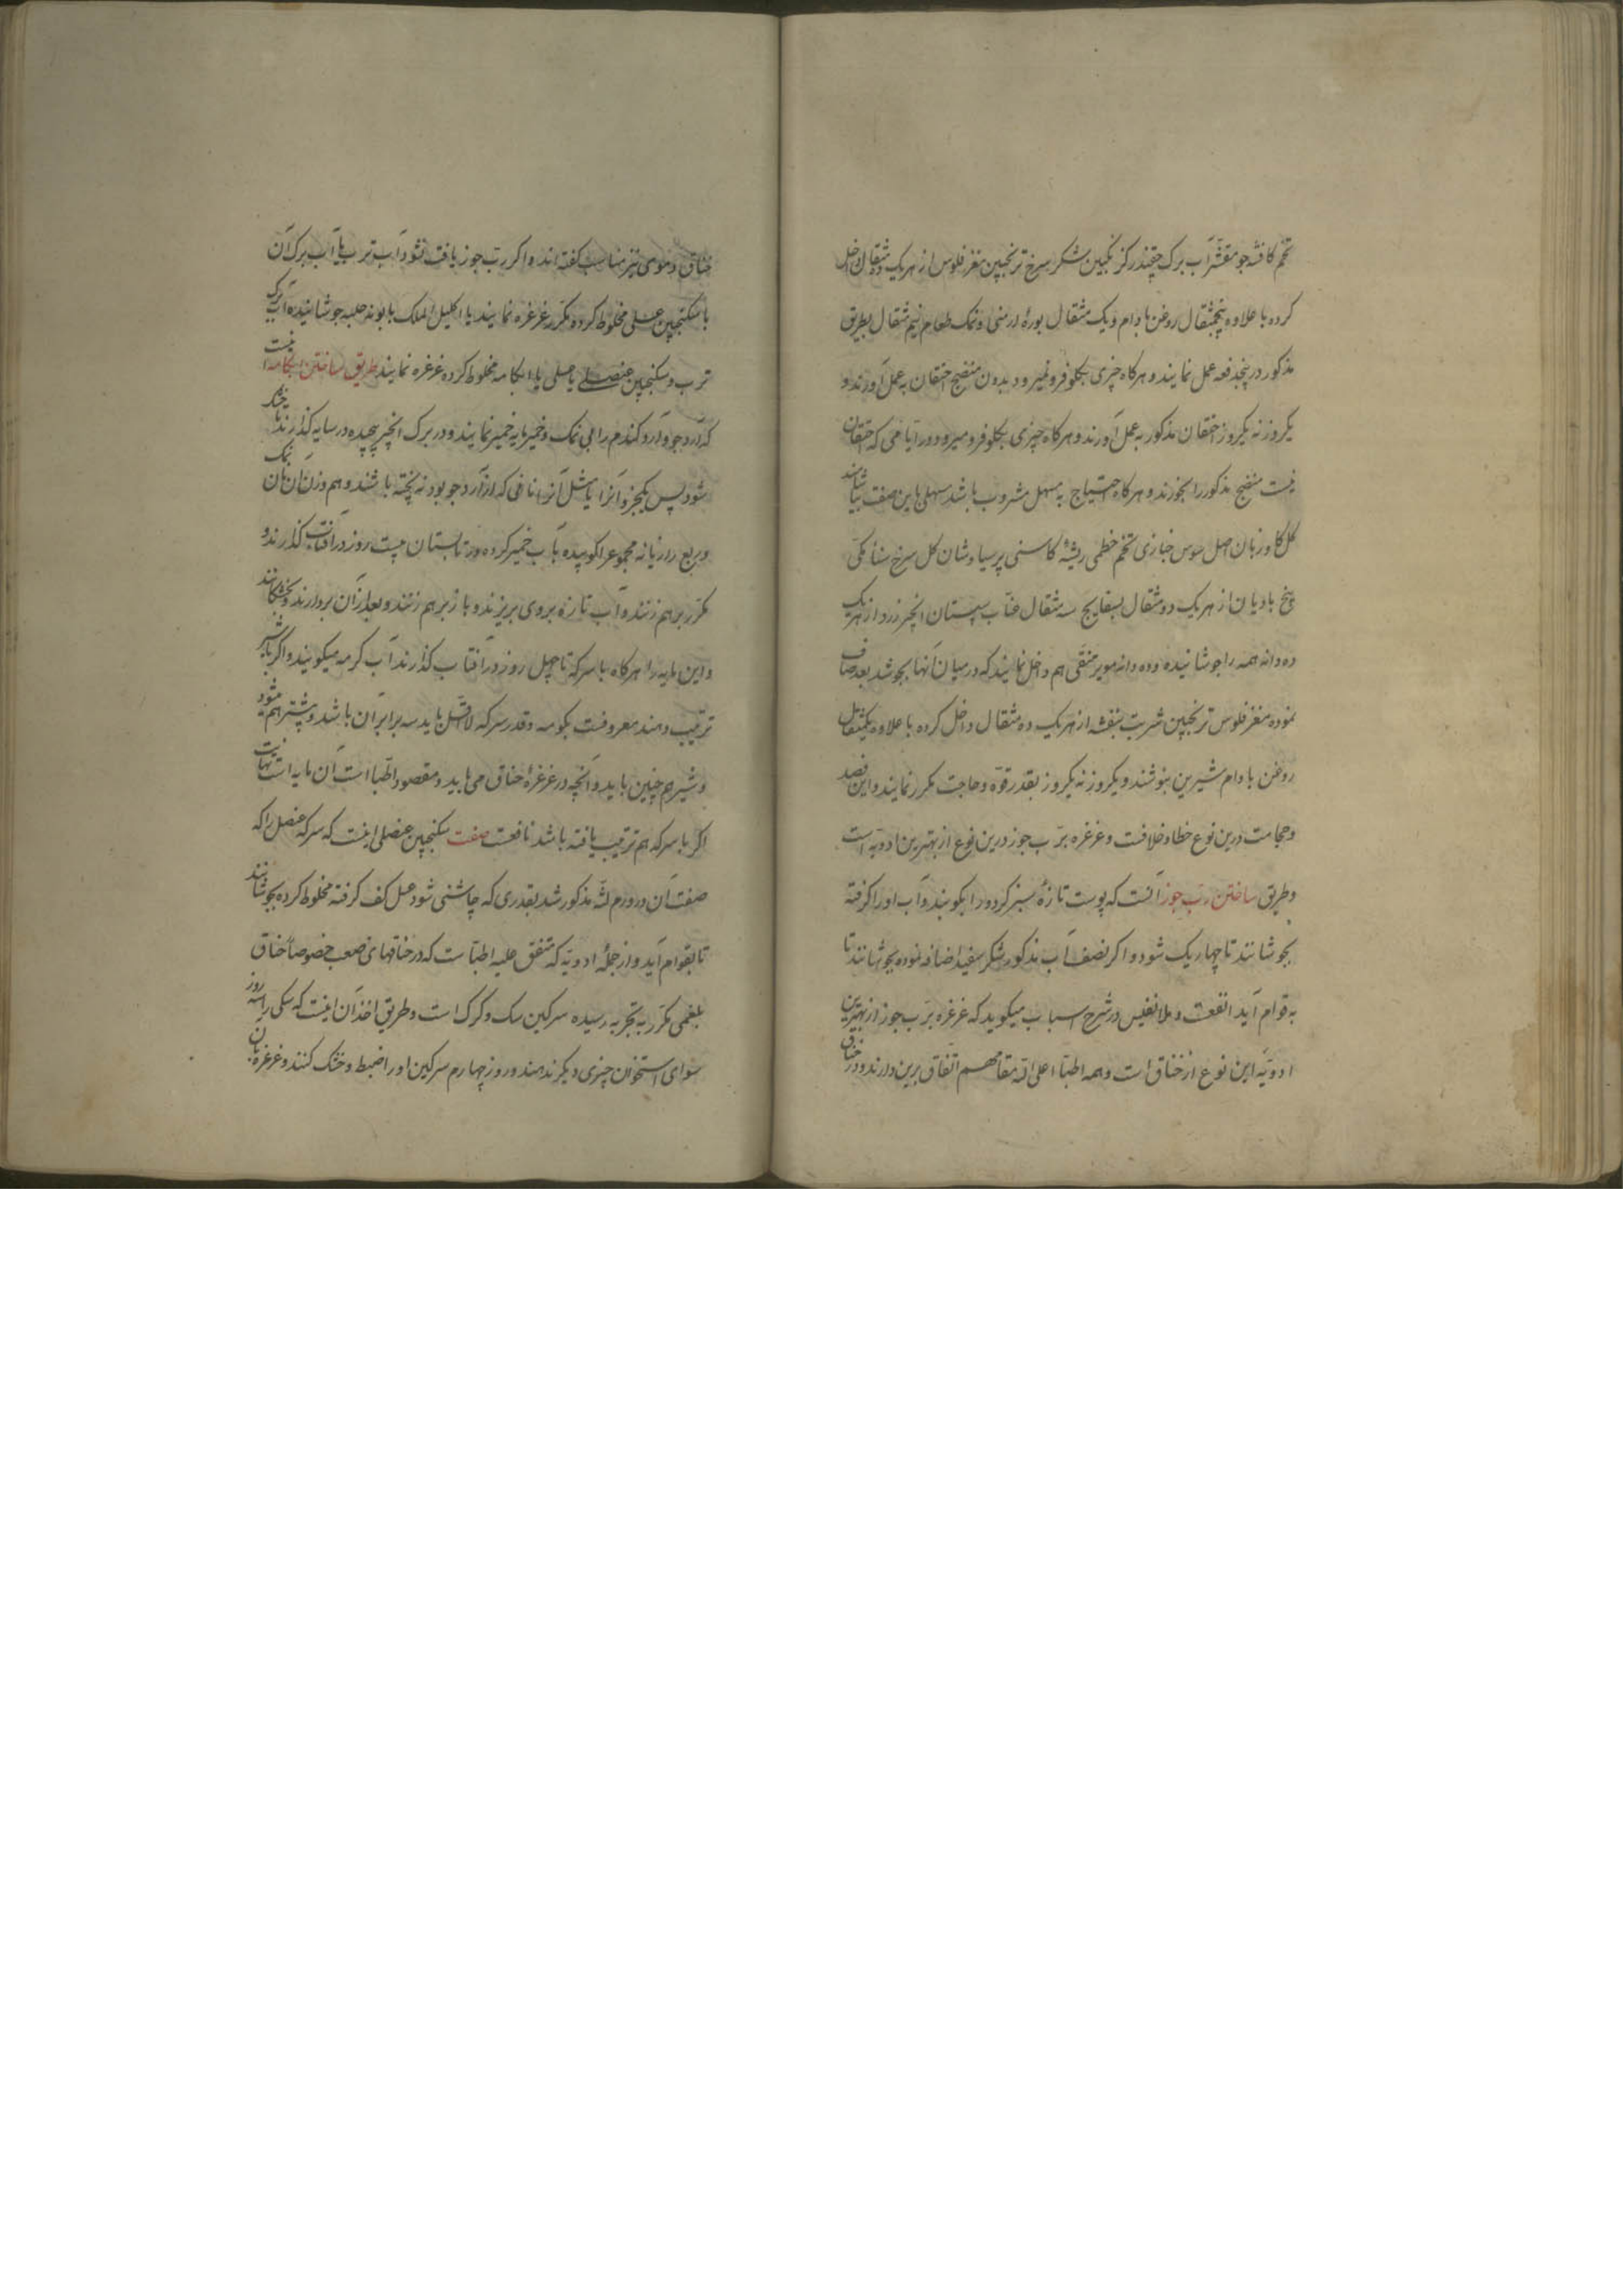 تخم کافشه جو مقشر آب برک چقندر کزنکبین شکر سرخ ترنجبین مغز فلوس از هر یک ده مثقال داخل
کرده با علاوه پنجمثقال روغن بادام و یک مثقال بوره ارمنی و نمک طعام نیم مثقال بطریق
مذکور در پنجدفعه عمل نمایند و هرکاه چیزی بکلو فرو نمیرود بدون منضج احتقان به عمل آورند و
یکروز نه یکروز احتقان مذکور به عمل آورند و هرکاه چیزی بکلو فرو میرود در ایامی که احتقان
نیست منضج مذکور را بخورند و هرکاه احتیاج به مسهل مشروب باشد مسهلی باین صفت بیاشامند
کل کاو زبان اصل سوس خبازی تخم خطمی ریشه کاسنی پرسیاوشان کل سرخ سناء مکی
بیخ بادیان از هر یک دو مثقال بسفایج سه مثقال عناب سپستان انجیر زرد از هر یک
ده دانه همه را جوشانیده و ده دانه مویز منقی هم داخل نمایند که در میان آنها بجوشد بعد صاف
نموده مغز فلوس ترنجبین شربت بنفشه از هر یک ده مثقال داخل کرده با علاوه یکمثقال
روغن بادام شیرین بنوشند و یکروز نه یکروز بقدر قوه و حاجت مکرر نمایند و این فصد
و حجامت درین نوع خطا و خلافست و غرغره برب جوز درین نوع از بهترین ادویه است
و طریق ساختن رب جوز آنست که پوست تازه سبز کردو را بکوبند و آب او را کرفته
بجوشانند تا چهار یک شود و اکر نصف آب مذکور شکر سفید اضافه نموده بجوشانند تا
به قوام آید انفعست و ملا نفیس در شرح اسباب میکوید که غرغره برب جوز از بهترین
ادویه این نوع از خناق است و همه اطبا اعلی الله مقامهم اتفاق برین دارند و در خناق
خناق دموی نیز مناسب کفته اند و اکر رب جوز یافت نشود آب ترب یا آب برک آن
با سکنجبین عسلی مخلوط کرده و مکرر غرغره نمایند یا اکلیل الملک بابونه حلبه جوشانیده آب برک
ترب و سکنجبین عنصلی یا عسلی یا آبکامه مخلوط کرده غرغره نمایند طریق ساختن آبکامه اینست
که آرد جو و آرد کندم را بی نمک و خمیرمایه خمیر نمایند و در برک انجیر پیچیده در سایه کذارند تا خشک
شود پس یکجزو آنرا یا مثل آنرا نانی که از آرد جو بود نه پخته باشند و هم وزن آن نان نمک
و ربع رازیانه مجموع را کوبیده با آب خمیر کرده در تابستان بیست روز در آفتاب کذارند و
مکرر برهم زنند و آب تازه بروی بریزند و باز برهم زنند و بعد از آن بردارند و بخشکانند
و این مایه را هرکاه با سرکه تا چهل روز در آفتاب کذارند آب کرمه میکویند و اکر با شیر
ترتیب دهند معروفست بکومه و قدر سرکه لااقل باید سه برابر آن باشد و بیشتر هم میشود
و شیر هم چنین باید و آنچه در غرغره خناق می باید و مقصود اطبا است آن مایه است تنهاست
اکر با سرکه هم ترتیب یافته باشد نافعست صفت سکنجبین عنصلی اینست که سرکه عنصل را که
صفت آن در ورم لثه مذکور شد بقدری که چاشنی شود عسل کف کرفته مخلوط کرده بجوشانند
تا بقوام آید و از جمله ادویه که متفق علیه اطبا ست که در خناقهای صعب خصوصا خناق
بلغمی مکرر به تجربه رسیده سرکین سک و کرک است و طریق اخذ آن اینست که سکی را سه روز
سوای استخوان چیزی دیکر ندهند و روز چهارم سرکین او را ضبط و خشک کنند و غرغره بآن